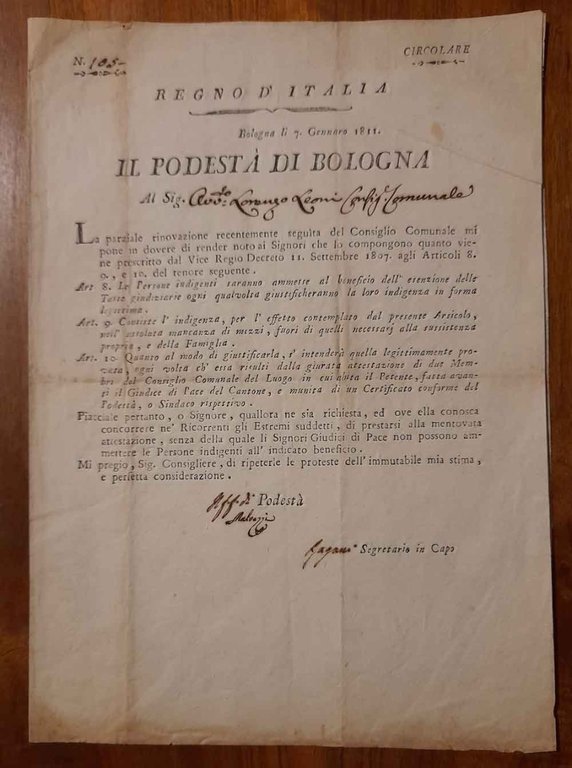 N. 105
CIRCOLARE
REGNO D'ITALIA
Bologna li 7. Gennaro 1811.
IL PODESTÀ DI BOLOGNA
Al Sig. Avv:to Lorenzo Leoni Consig: Comunale
La parziale rinovazione recentemente seguita del Consiglio Comunale mi
pone in dovere di render noto ai Signori che lo compongono quanto vie-
ne prescritto dal Vice Regio Decreto 11. Settembre 1807. agli Articoli 8.
9., e 10. del tenore seguente.
Art 8. Le Persone indigenti saranno ammesse al beneficio dell' esenzione delle
Tasse giudiziarie ogni qualvolta giustificheranno la loro indigenza in forma
legittima.
Art. 9. Consiste l' indigenza, per l' effetto contemplato dal presente Articolo,
nell' assoluta mancanza di mezzi, fuori di quelli necessarj alla sussistenza
propria, e della Famiglia.
Art. 10 Quanto al modo di giustificarla, s' intenderà quella legittimamente pro-
vata, ogni volta ch' essa risulti dalla giurata attestazione di due Mem-
bri del Consiglio Comunale del Luogo in cui abita il Petente, fatta avan-
ti il Giudice di Pace del Cantone, e munita di un Certificato conforme del
Podestà, o Sindaco rispettivo.
Piacciale pertanto, o Signore, quallora ne sia richiesta, ed ove ella conosca
concorrere ne' Ricorrenti gli Estremi suddetti, di prestarsi alla mentovata
attestazione, senza della quale li Signori Giudici di Pace non possono am-
mettere le Persone indigenti all' indicato beneficio.
Mi pregio, Sig. Consigliere, di ripeterle le proteste dell' immutabile mia stima,
e perfetta considerazione.
Aff: di Podestà
Malvezzi
Segretario in Capo